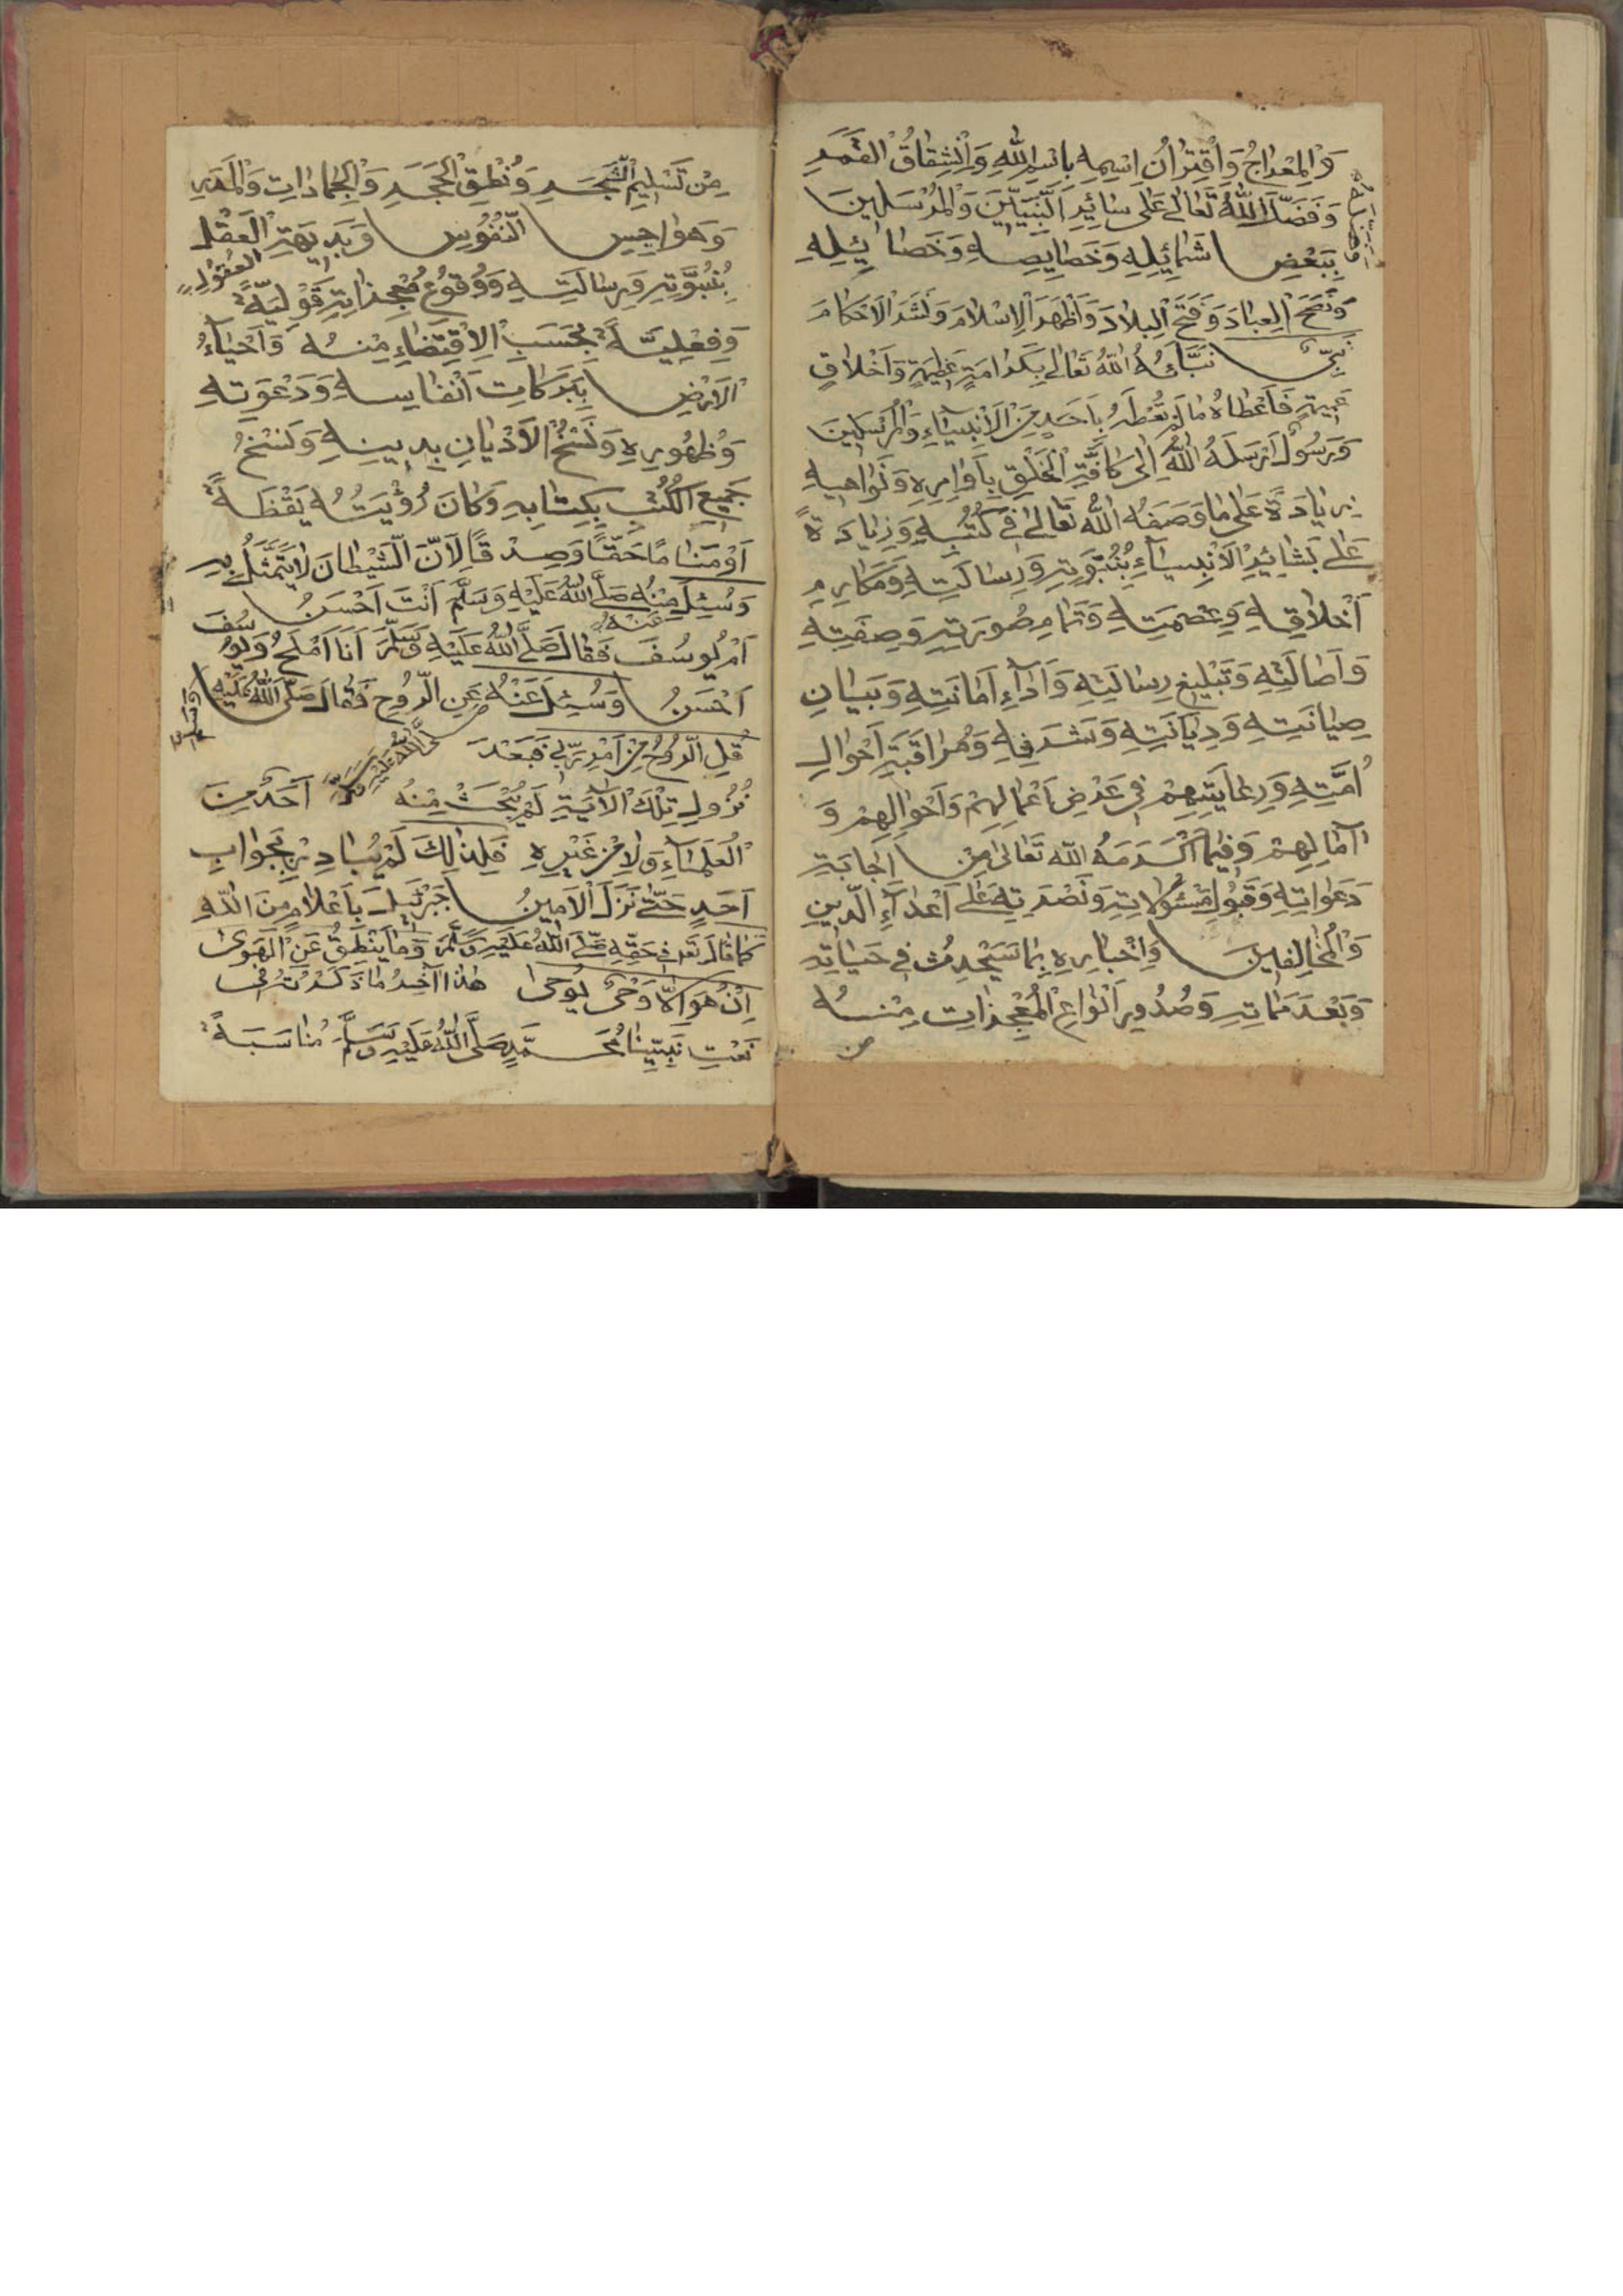 وَالْمِعْرَاجُ وَاقْتِرَانُ اسْمِهِ بِاسْمِ اللّٰهِ وَانْشِقَاقُ الْقَمَرِ
وَفَضَّلَهُ اللّٰهُ تَعَالٰى عَلٰى سَائِرِ النَّبِيِّيْنَ وَالْمُرْسَلِيْنَ
بِبَعْضِ شَمَائِلِهِ وَخَصَايِصِهِ وَخَصَائِلِهِ
وَنَصَحَ الْعِبَادَ وَفَتَحَ الْبِلَادَ وَاَظْهَرَ الْاِسْلَامَ وَنَشَرَ الْاَحْكَامَ
نَبِيٌّ نَبَّأَهُ اللّٰهُ تَعَالٰى بِكَرَامَةٍ عَظِيْمَةٍ وَاَخْلَاقٍ
فَاَعْطَاهُ مَا لَمْ يُعْطَهُ بِاَحَدٍ مِنَ الْاَنْبِيَاءِ وَالْمُرْسَلِيْنَ
وَرَسُوْلٌ اَرْسَلَهُ اللّٰهُ اِلٰى كَافَّةِ الْخَلْقِ بِاَوَامِرِهِ وَنَوَاهِيهِ
زِيَادَةً عَلٰى مَا وَصَفَهُ اللّٰهُ تَعَالٰى فِي كُتُبِهِ وَزِيَادَةً
عَلٰى بَشَائِرِ الْاَنْبِيَاءِ بِنُبُوَّتِهِ وَرِسَالَتِهِ وَمَكَارِمِ
اَخْلَاقِهِ وَعِصْمَتِهِ وَتَمَامِ صُوْرَتِهِ وَصِفَتِهِ
وَاَصَالَتِهِ وَتَبْلِيْغِ رِسَالَتِهِ وَاَدَاءِ اَمَانَتِهِ وَبَيَانِ
صِيَانَتِهِ وَدِيَانَتِهِ وَشَرَفِهِ وَمُرَاقَبَةِ اَحْوَالِ
اُمَّتِهِ وَرِعَايَتِهِمْ فِي عَرْضِ اَعْمَالِهِمْ وَاَحْوَالِهِمْ وَ
اٰمَالِهِمْ وَفِيْمَا اَكْرَمَهُ اللّٰهُ تَعَالٰى مِنْ اِجَابَةِ
دَعَوَاتِهِ وَقَبُوْلِ مَسْئُوْلَاتِهِ وَنُصْرَتِهِ عَلٰى اَعْدَاءِ الدِّيْنِ
وَالْمُخَالِفِيْنَ وَاِخْبَارِهِ بِمَا سَيَحْدِثُ فِي حَيَاتِهِ
وَبَعْدَ مَمَاتِهِ وَصُدُوْرِ اَنْوَاعِ الْمُعْجِزَاتِ مِنْهُ
من
مِنْ تَسْلِيْمِ الشَّجَرِ وَنُطْقِ الْحَجَرِ وَالْجَمَادَاتِ وَالْمَدَرِ
وَهَوَاجِسِ النُّفُوْسِ وَبَدِيْهَةِ الْعَقْلِ
الْعُقُوْلِ
بِنُبُوَّتِهِ وَرِسَالَتِهِ وَوُقُوْعِ مُعْجِزَاتِهِ قَوْلِيَّةً
وَفِعْلِيَّةً بِحَسَبِ الْاِقْتِضَاءِ مِنْهُ وَاَحْيَاءُ
الْاَرْضِ بِبَرَكَاتِ اَنْفَاسِهِ وَدَعْوَتِهِ
وَظُهُوْرِهِ وَنَسْخُ الْاَدْيَانِ بِدِيْنِهِ وَنَسْخُ
جَمِيْعِ الْكُتُبِ بِكِتَابِهِ وَكَانَ رُؤْيَتُهُ يَقْظَةً
اَوْ مَنَامًا حَقًّا وَصِدْقًا لِاَنَّ الشَّيْطَانَ لَا يَتَمَثَّلُ بِهِ
وَسُئِلَ مِنْهُ صَلَّى اللّٰهُ عَلَيْهِ وَسَلَّمَ اَنْتَ اَحْسَنُ
عَنْهُ
اَمْ يُوْسُفَ فَقَالَ صَلَّى اللّٰهُ عَلَيْهِ وَسَلَّمَ اَنَا اَمْلَحُ وَيُوْسُفَ
اَحْسَنُ وَسُئِلَ عَنْهُ عَنِ الرُّوْحِ فَقَالَ صَلَّى اللّٰهُ عَلَيْهِ وَسَلَّمَ
صَلَّى اللّٰهُ عَلَيْهِ وَسَلَّمَ
قُلِ الرُّوْحُ مِنْ اَمْرِ رَبِّي فَبَعْدَ
نُزُوْلِ تِلْكَ الْاٰيَةِ لَمْ يُبْحَثْ مِنْهُ اَحَدٌ مِنَ
الْعُلَمَاءِ وَلَا مِنْ غَيْرِهِ فَلِذٰلِكَ لَمْ يُبَادِرْ بِجَوَابِ
اَحَدٍ حَتّٰى نَزَلَ الْاَمِيْنُ جَبْرَئِيْلَ بِاَعْلَامٍ مِنَ اللّٰهِ
كَمَا قَالَ تَعَ فِي حَقِّهِ صَلَّى اللّٰهُ عَلَيْهِ وَسَلَّمَ وَمَا يَنْطِقُ عَنِ الْهَوٰى
اِنْ هُوَ اِلَّا وَحْيٌ يُوْحٰى هٰذَا اٰخِرُ مَا ذَكَرْتُ فِي
نَعْتِ نَبِيِّنَا مُحَمَّدٍ صَلَّى اللّٰهُ عَلَيْهِ وَسَلَّمَ مُنَاسَبَةً